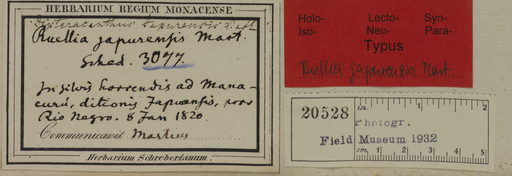 HERBARIUM REGIUM MONACENSE
Ruellia japurensis Mart.
Sched. 3077.
In silvis horrendis ad Mana-
curú, ditionis Japurensis,
Rio Negro. 8 Jan 1820.
Communicavit Martius
Herbarium Schreberianum.
Holo- Lecto- Syn-
Iso- Neo- Para-
Typus
Ruellia japurensis Mart.
20528
in. 1 2
Photogr.
Field Museum 1932
cm. 1 2 3 4 5